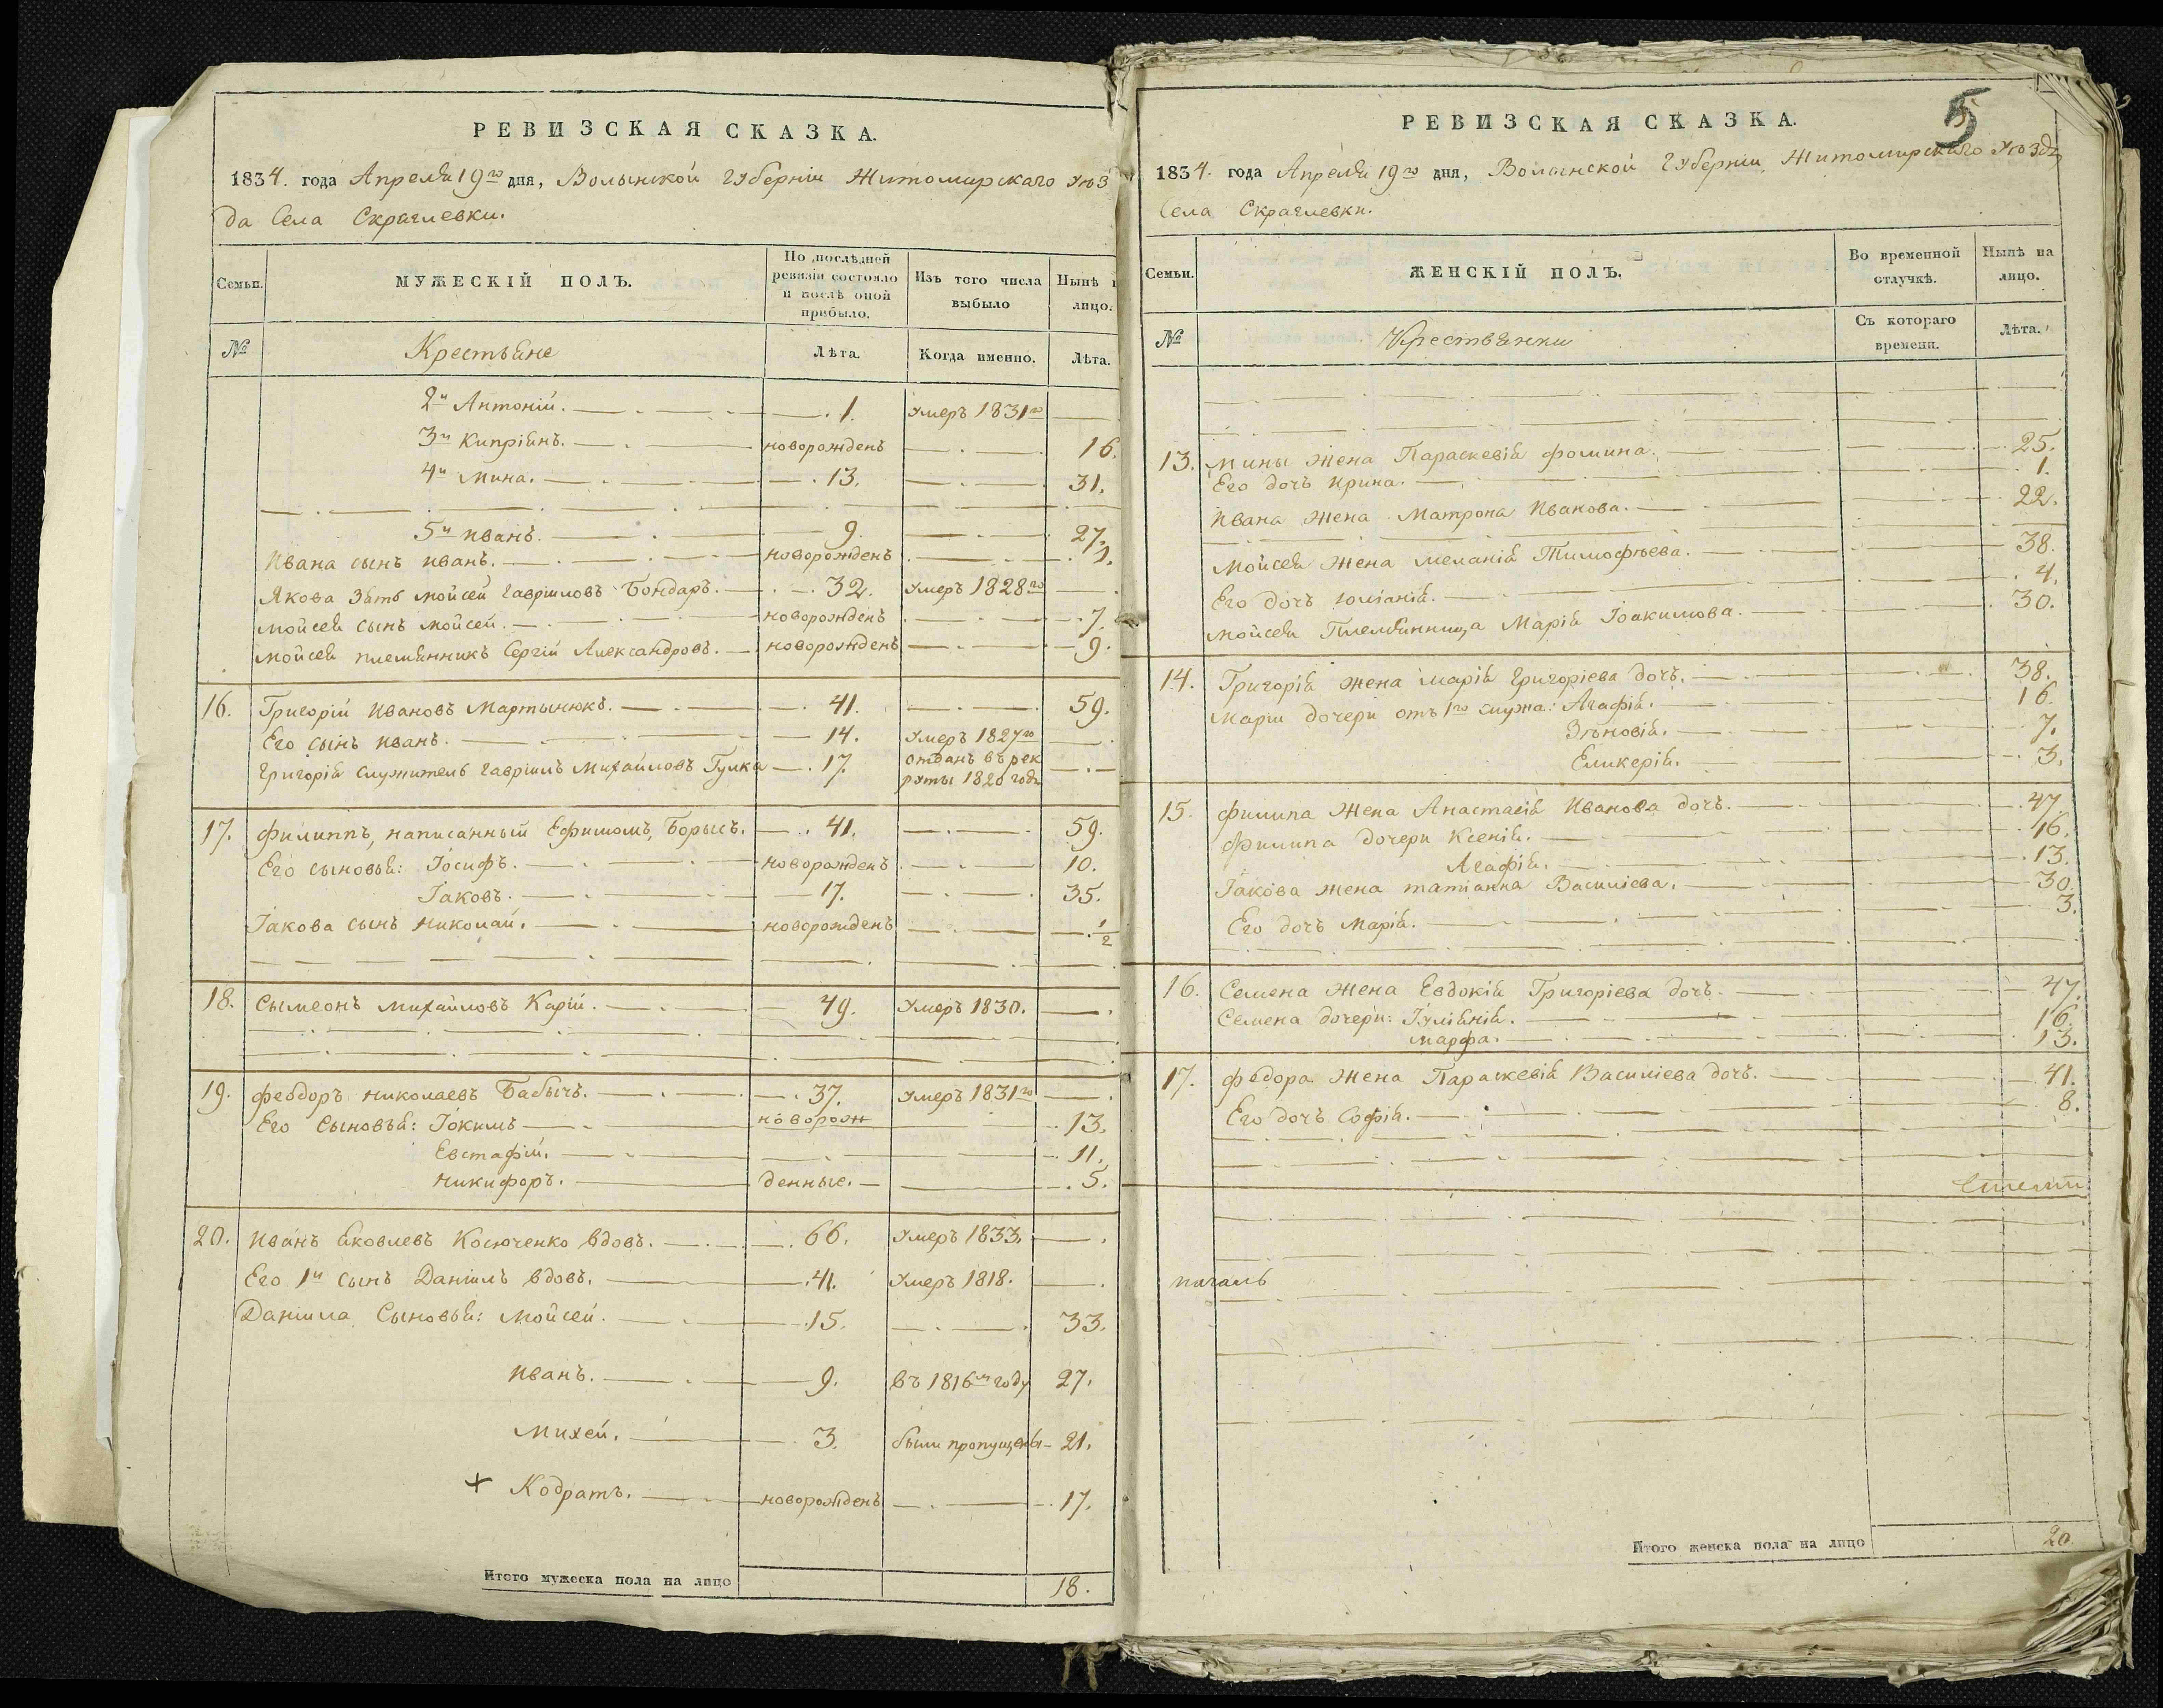 РЕВИЗСКАЯ СКАЗКА.
1834. года Апреля 19го дня, Волынской Губерніи Житомирскаго Уѣз
да Села Скраглевки.
Семьи.
МУЖЕСКІЙ ПОЛЪ.
По послѣдней ревизіи состояло и послѣ оной прибыло.
Изъ того числа выбыло
Нынѣ лицо.
№
Крестьяне
Лѣта.
Когда именно.
Лѣта.
2й Антоній. 1. умеръ 1831го
3й Кипріянъ. новорожденъ 16.
4й Мина. 13. 31.
5й Иванъ. 9. 27.
Ивана сынъ Иванъ. новорожденъ 1.
Якова зять Мойсей Гавриловъ Бондаръ. 32. умеръ 1828го
Мойсея сынъ Мойсей. новорожденъ 7.
Мойсея племянникъ Сергій Александровъ. новорожденъ 9.
16. Григорій Ивановъ Мартынюкъ. 41. 59.
Его сынъ Иванъ. 14. умеръ 1827го
Григорія служитель Гавріилъ Михайловъ Гулка 17. отданъ въ рек
руты 1820 года
17. Филиппъ, написанный Ефимомъ, Борысъ. 41. 59.
Его сыновья: Іосифъ. новорожденъ 10.
Іаковъ. 17. 35.
Іакова сынъ Николай. новорожденъ 1/2
18. Сымеонъ Михайловъ Карій. 49. умеръ 1830.
19. Феодоръ Николаевъ Бабычъ. 37. умеръ 1831го
Его Сыновья: Іокимъ новорож 13.
Евстафій. 11.
Никифоръ. денные. 5.
20. Иванъ Яковлевъ Косюченко вдовъ. 66. умеръ 1833.
Его 1й сынъ Даніилъ вдовъ. 41. умеръ 1818.
Даніила Сыновья: Мойсей. 15. 33.
Иванъ. 9. въ 1816м году 27.
Михей. 3. были пропущены 21.
+ Кодратъ. новорожденъ 17.
Итого мужеска пола на лицо 18.
5
РЕВИЗСКАЯ СКАЗКА.
1834. года Апреля 19го дня, Волынской Губерніи, Житомирскаго Уѣзда
Села Скраглевки.
Семьи.
ЖЕНСКІЙ ПОЛЪ.
Во временной отлучкѣ.
Нынѣ на лицо.
№
Крестьянки
Съ котораго времени.
Лѣта.
13. Мины жена Параскевія Фомина. 25.
Его дочь Ирина. 1.
Ивана жена Матрона Иванова. 22.
Мойсея жена Меланія Тимофѣева. 38.
Его дочъ Юліанія. 4.
Мойсея Племянница Марія Іоакимова. 30.
14. Григорія жена Марія Григоріева дочъ. 38.
Маріи дочери отъ 1го мужа: Агафія. 16.
Зѣновія. 7.
Еликерія. 3.
15. Филипа жена Анастасія Иванова дочъ. 47.
Филипа дочери Ксенія. 16.
Агафія. 13.
Іакова жена Татіанна Василіева. 30.
Его дочъ Марія. 3.
16. Семена жена Евдокія Григоріева дочъ. 47.
Семена дочери: Іуліянія. 16.
Марфа. 13.
17. Федора жена Параскевія Василіева дочъ. 41.
Его дочъ Софія. 8.
Итого женска пола на лицо 20.